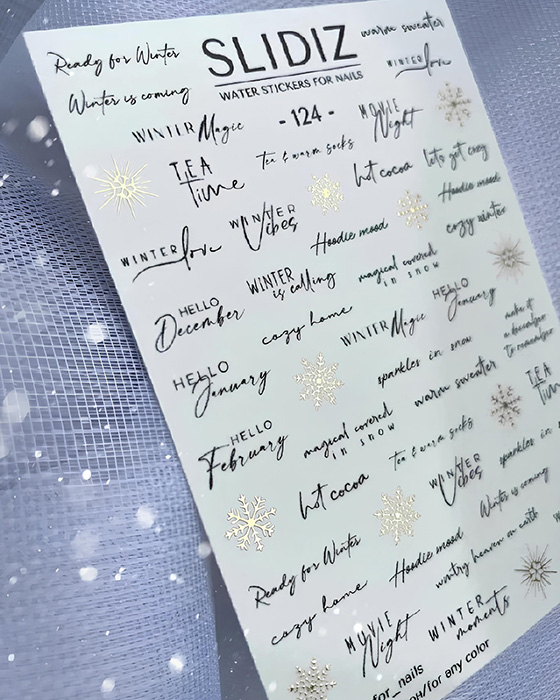 Ready for Winter
SLIDIZ
warm sweater
Winter is coming
WATER STICKERS FOR NAILS
WINTER love
WINTER Magic
- 124 -
MOVIE
Night
TEA
Time
Tea & warm socks
hot cocoa
let's get cozy
Hoodie mood
WINTER love
WINTER
Vibes
Hoodie mood
cozy winter
HELLO
December
WINTER
is calling
magical covered
in snow
HELLO
January
cozy home
WINTER Magic
make it
a December
to remember
HELLO
January
sparkles in snow
TEA
Time
HELLO
February
magical covered
in snow
warm sweater
Tea & warm socks
hot cocoa
WINTER
Vibes
sparkles in
Winter is coming
Ready for Winter
Hoodie mood
wintry heaven on earth
cozy home
MOVIE
Night
WINTER
moments
for_nails
for any color